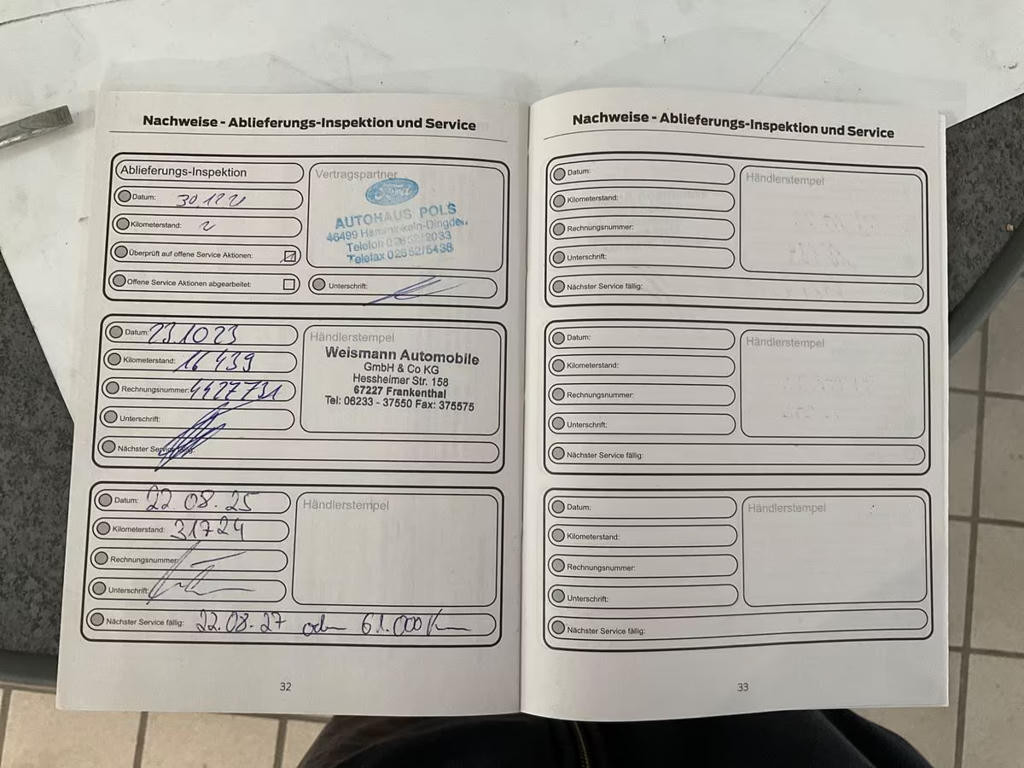 Nachweise - Ablieferungs-Inspektion und Service
Ablieferungs-Inspektion
Datum:
Kilometerstand:
Überprüft auf offene Service Aktionen:
Offene Service Aktionen abgearbeitet:
Vertragspartner
Ford
AUTOHAUS POLS
46499
Telefon
Telefax 02852/5438
Unterschrift:
Datum: 23.10 23
Kilometerstand: 16 439
Rechnungsnummer: 4427731
Unterschrift:
Nächster Service fällig:
Händlerstempel
Weismann Automobile
GmbH & Co KG
Hessheimer Str. 158
67227 Frankenthal
Tel: 06233 - 37550 Fax: 375575
Datum: 22.08.25
Kilometerstand: 31724
Rechnungsnummer:
Unterschrift:
Händlerstempel
Nächster Service fällig: 22.08.27 oder 61.000 Km
32
Nachweise - Ablieferungs-Inspektion und Service
Datum:
Kilometerstand:
Rechnungsnummer:
Unterschrift:
Nächster Service fällig:
Händlerstempel
Datum:
Kilometerstand:
Rechnungsnummer:
Unterschrift:
Nächster Service fällig:
Händlerstempel
Datum:
Kilometerstand:
Rechnungsnummer:
Unterschrift:
Nächster Service fällig:
Händlerstempel
33